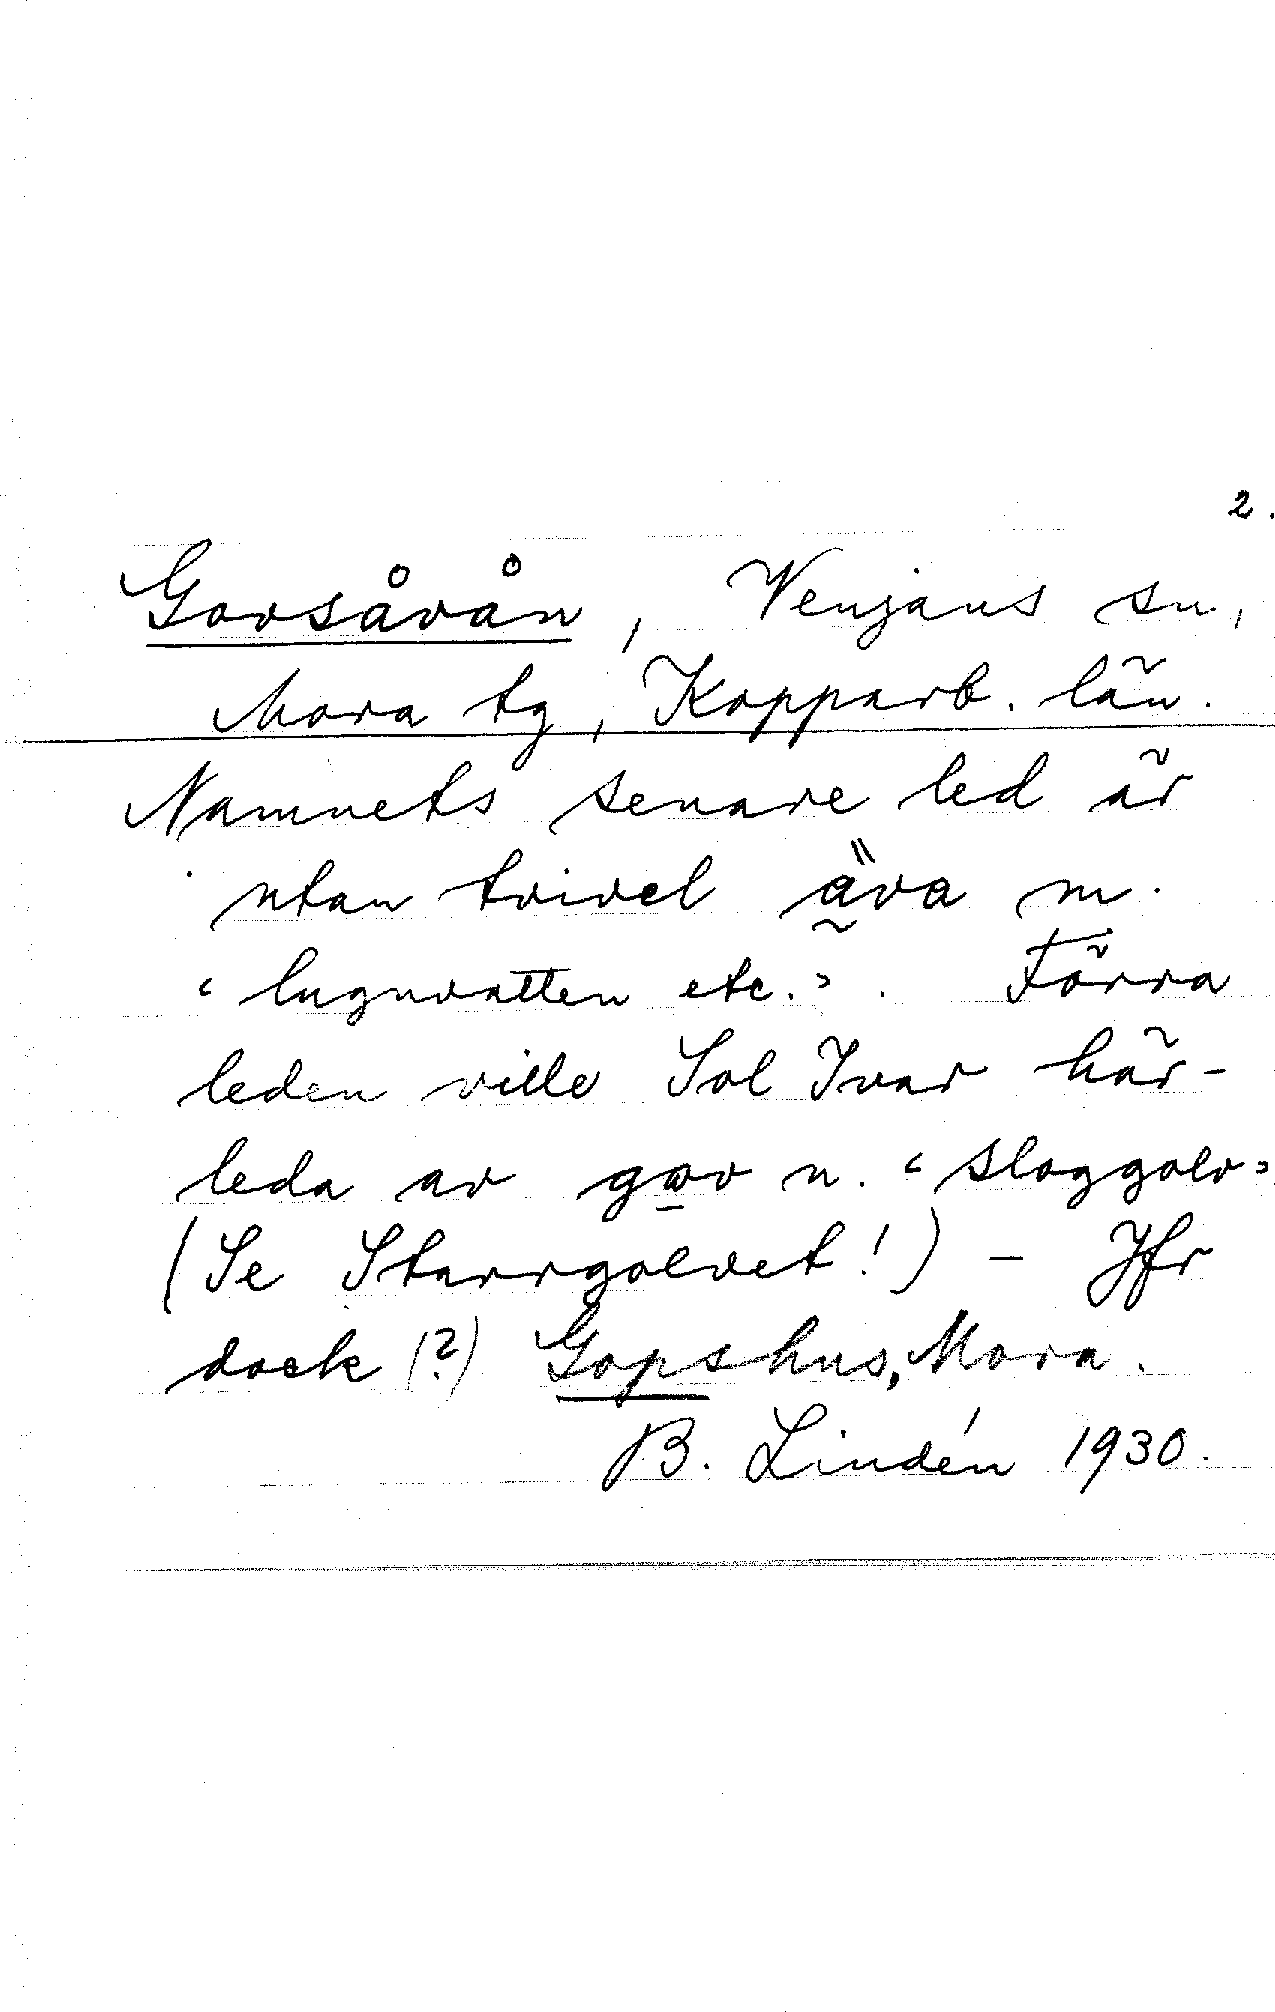 2.
Govsåvån, Venjans sn,
Mora tg, Kopparb. län.
Namnets senare led är
utan tvivel äva m.
‘lugnvatten etc.’. Förra
leden ville Sol Ivar här-
leda av gov n. ‘sloggolv’
(Se Starrgolvet!) - Jfr
dock (?) Gopshus, Mora.
B. Lindén 1930.